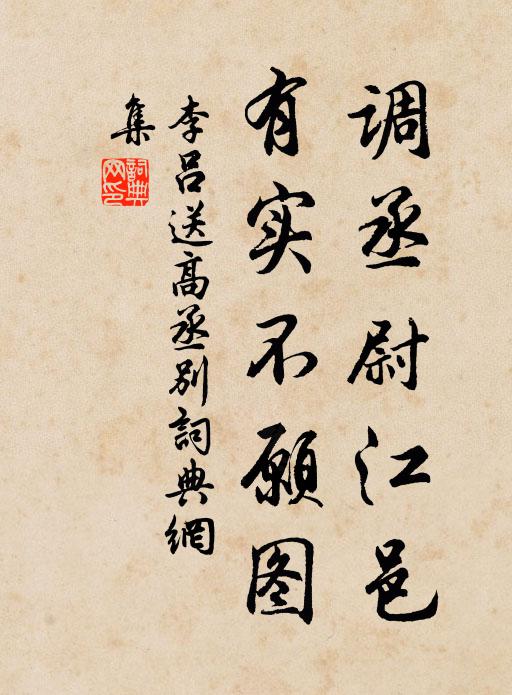 调丞尉江邑
有实不愿图
李吕送高丞别詞典網
集
詞典
网印